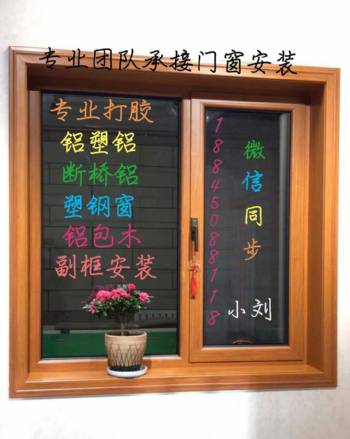 专业团队承接门窗安装
专业打胶
铝塑铝
断桥铝
塑钢窗
铝包木
副框安装
18845088118
微信同步
小刘